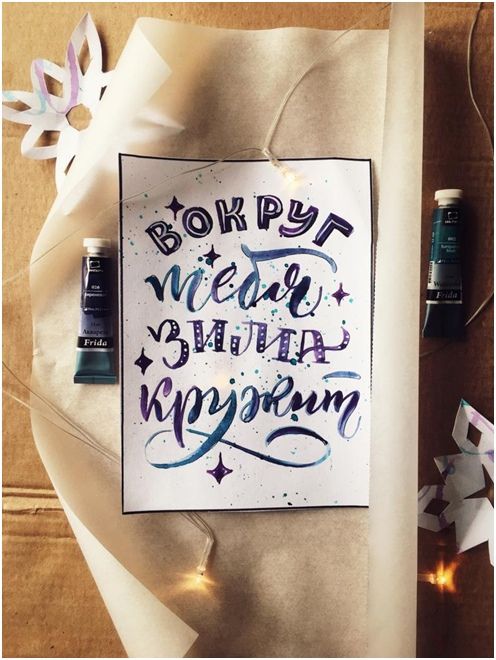 ВОКРУГ
тебя
ЗИМА
кружит
Акварель
Frida
Frida